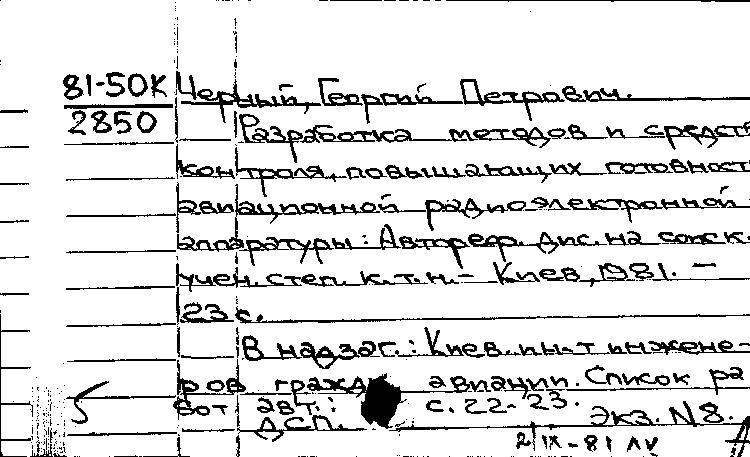 81-50К Черный, Георгий Петрович.
2850 Разработка методов и средств
контроля, повышающих готовност
авиационной радиоэлектронной
аппаратуры: Автореф. дис. на соиск.
учен. степ. к.т.н. - Киев, 1981. -
23 с.
В надзаг.: Киев. ин-т инжене-
ров гражд. авиации. Список ра
бот авт.: с. 22-23.
5 ДСП. Экз. N8.
2/IX-81